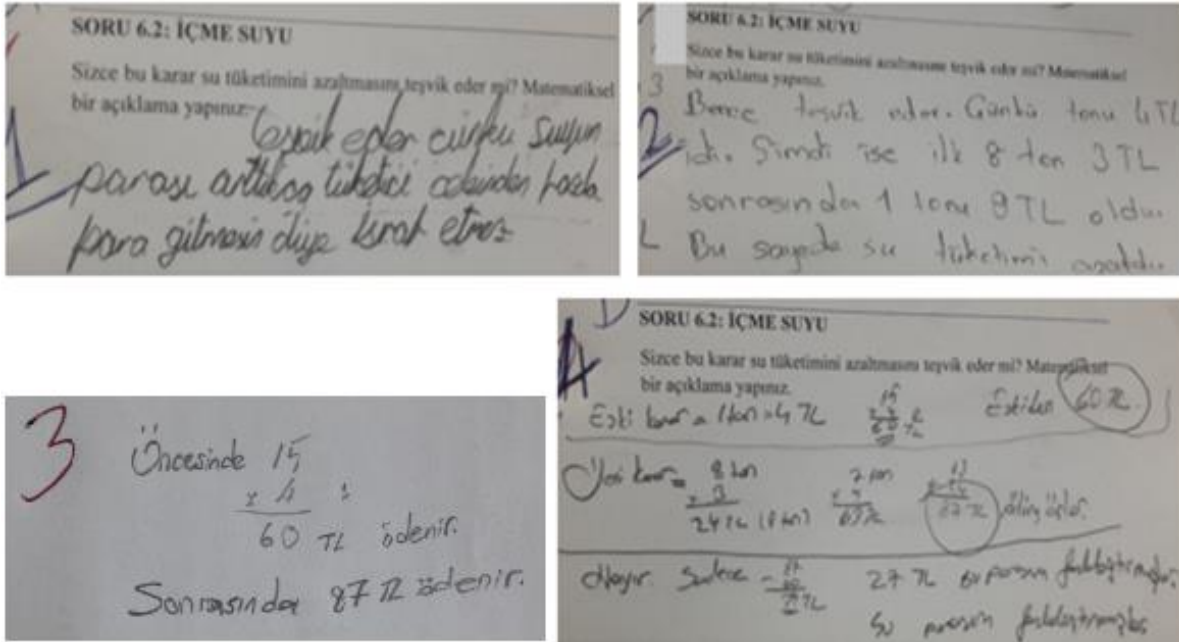 SORU 6.2: İÇME SUYU
Sizce bu karar su tüketimini azaltmasını teşvik eder mi? Matematiksel
bir açıklama yapınız.
1
teşvik eder çünkü suyun
parası arttıkça tüketici cebinden fazla
para gitmesin diye israf etmez
SORU 6.2: İÇME SUYU
Sizce bu karar su tüketimini azaltmasını teşvik eder mi? Matematiksel
bir açıklama yapınız.
2
Bence teşvik eder. Günkü tonu 4 TL
idi. Şimdi ise ilk 8 ton 3 TL
sonrasında 1 tonu 9 TL oldu.
Bu sayede su tüketimi azaldı.
3
Öncesinde 15
x 4
60 TL ödenir.
Sonrasında 87 TL ödenir.
SORU 6.2: İÇME SUYU
Sizce bu karar su tüketimini azaltmasını teşvik eder mi? Matematiksel
bir açıklama yapınız.
4
Eski karar = 1 ton = 4 TL 15 x 4 60 TL Eskiden 60 TL
8 ton 7 ton
x 3 x 9
24 TL (8 ton) 63 TL 87 TL
Hayır. Sadece 27 TL